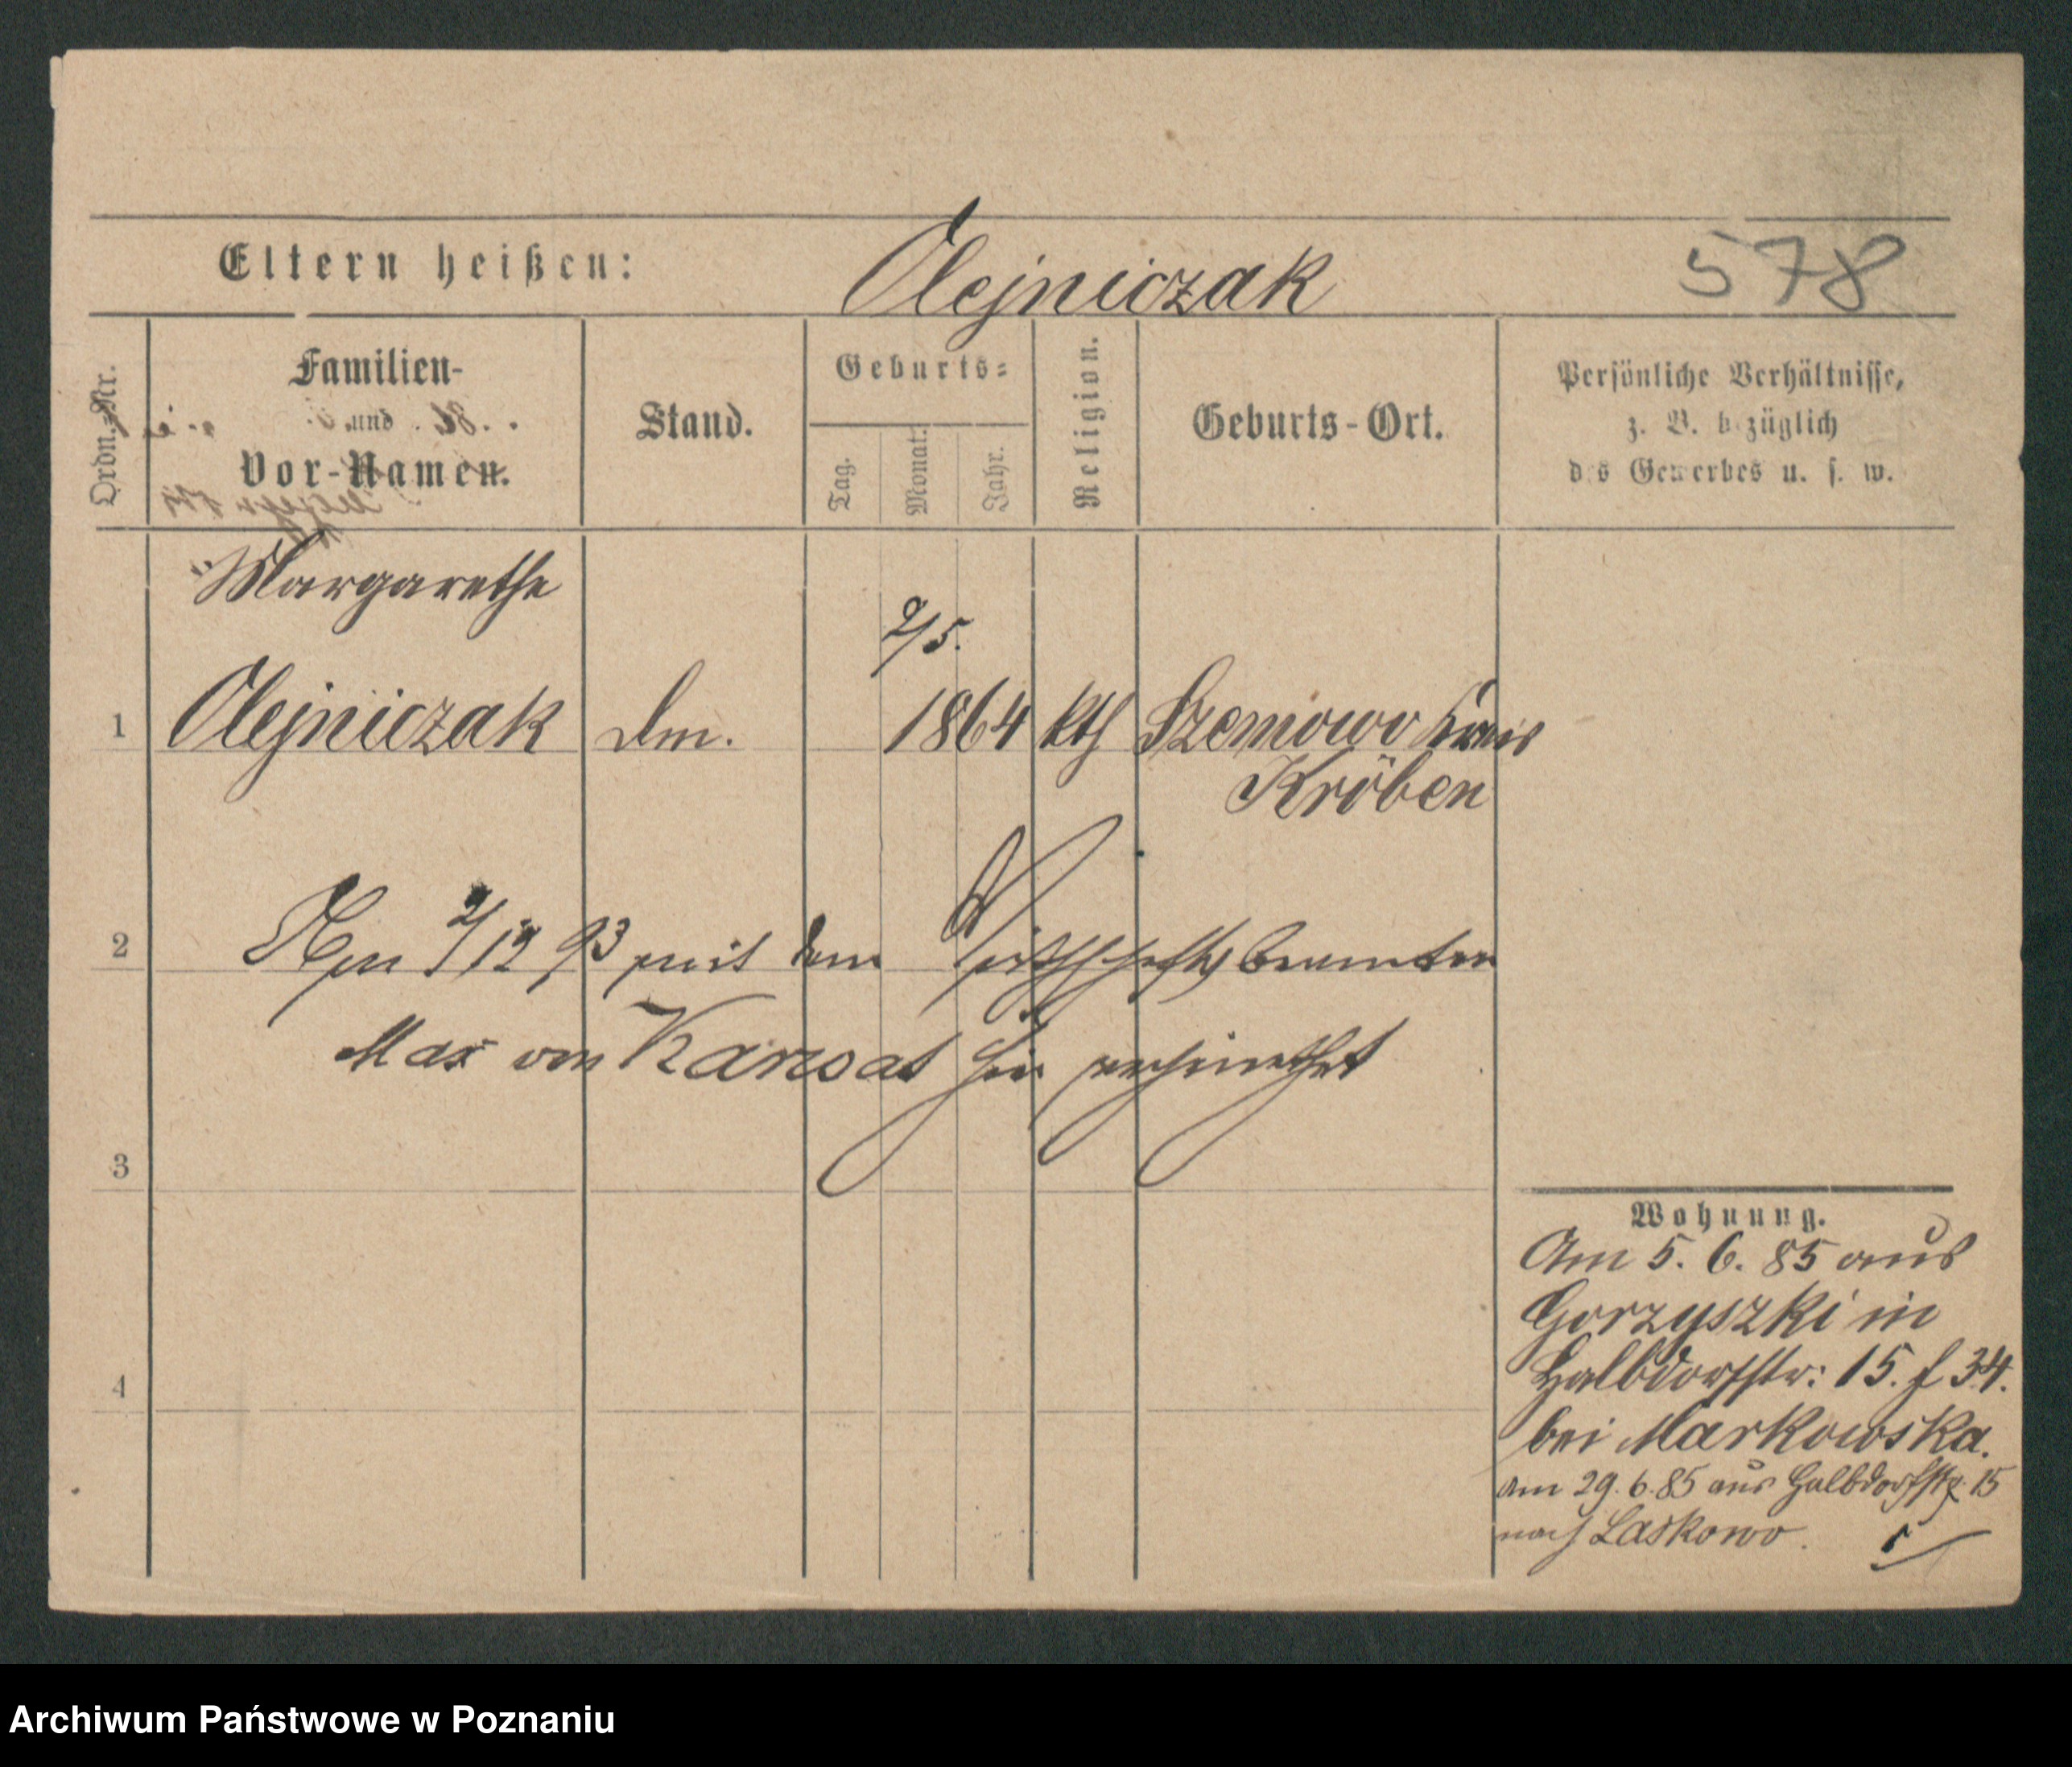 Eltern heißen: Olejniczak 578
Ordn.-Nr.
Familien-
und
Vor-Namen.
Stand.
Geburts-
Tag.
Monat.
Jahr.
Religion.
Geburts-Ort.
Persönliche Verhältnisse,
z. B. bezüglich
des Gewerbes u. s. w.
Margarethe
2/5.
1 Olejniczak Dm. 1864 kth Szemowo Kreis
Kröben
2 Am 2/12 93 mit dem Wirthschaftsbeamten
Max von Karwat hier verheirathet
3
4
Wohnung.
Am 5. 6. 85 aus
Gorzyszki in
Halbdorfstr: 15. f 34.
bei Markowska.
Am 29. 6. 85 aus Halbdorfstr 15
nach Laskowo.
Archiwum Państwowe w Poznaniu